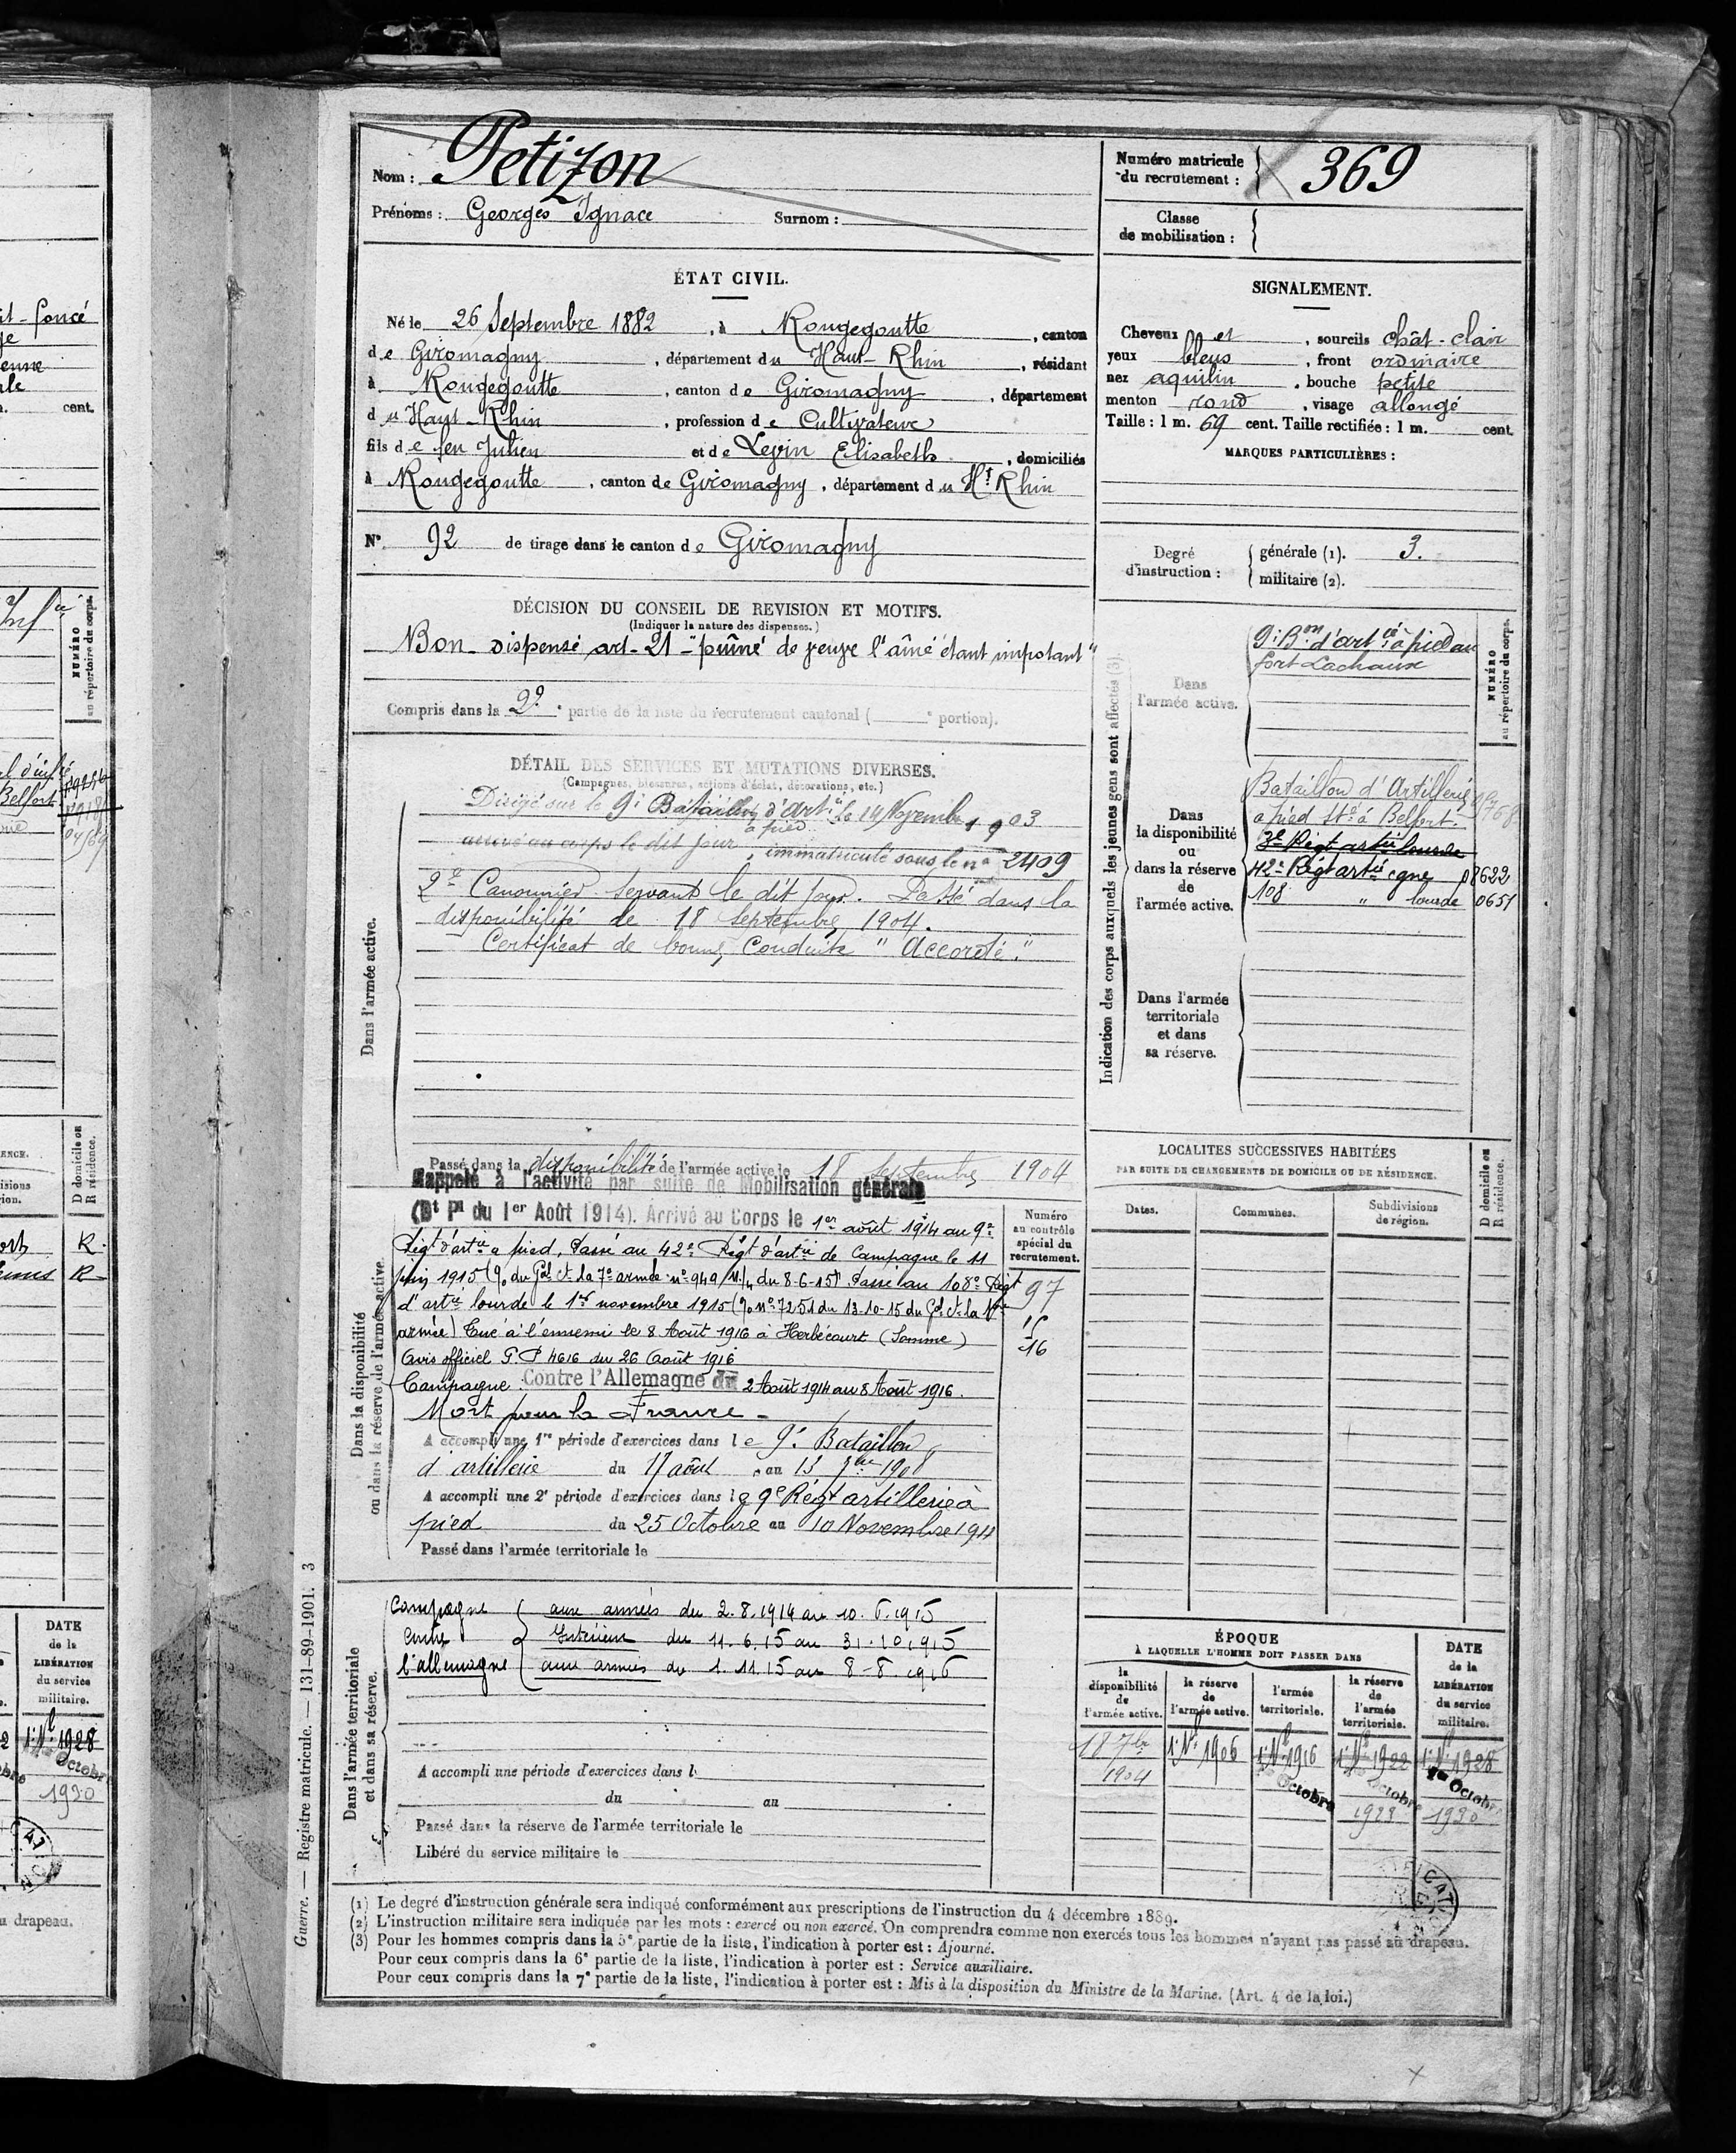 Nom : Petizon
Prénoms : Georges Ignace Surnom :
Numéro matricule
du recrutement : 369
Classe
de mobilisation :
ÉTAT CIVIL.
Né le 26 Septembre 1882, à Rougegoutte, canton
de Giromagny, département du Haut-Rhin, résidant
à Rougegoutte, canton de Giromagny, département
du Haut-Rhin, profession de Cultivateur
fils de feu Julien et de Lepin Elisabeth, domiciliés
à Rougegoutte, canton de Giromagny, département du Ht Rhin
N° 92 de tirage dans le canton de Giromagny
SIGNALEMENT.
Cheveux et, sourcils chât-clair
yeux bleus, front ordinaire
nez aquilin, bouche petite
menton rond, visage allongé
Taille : 1 m. 69 cent. Taille rectifiée : 1 m. cent.
MARQUES PARTICULIÈRES :
Degré
d'instruction :
générale (1). 3.
militaire (2).
DÉCISION DU CONSEIL DE REVISION ET MOTIFS.
(Indiquer la nature des dispenses.)
Bon - dispensé art-21 - "puîné de veuve l'aîné étant impotant"
Compris dans la 2e partie de la liste du recrutement cantonal ( e portion).
DÉTAIL DES SERVICES ET MUTATIONS DIVERSES.
(Campagnes, blessures, actions d'éclat, décorations, etc.)
Dans l'armée active.
Dirigé sur le 9e Bataillon d'artie à pied le 14 Novembre 1903
arrivé au corps le dit jour, immatriculé sous le n° 2409
2e Canonnier servant le dit jour. Passé dans la
disponibilité de 18 Septembre 1904.
Certificat de bonne Conduite "Accordé."
Passé dans la disponibilité de l'armée active le 18 Septembre 1904
Indication des corps auxquels les jeunes gens sont affectés (3)
NUMÉRO
au répertoire du corps.
Dans
l'armée active.
9e Bon d'artie à pied au
fort Lachaux
Dans
la disponibilité
ou
dans la réserve
de
l'armée active.
Bataillon d'Artillerie
à pied à Belfort.
3e Régt artie lourde
42e Régt artie cgne 08622
108 " lourde 0651
Dans l'armée
territoriale
et dans
sa réserve.
Dans la disponibilité
ou dans la réserve de l'armée active.
Rappelé à l'activité par suite de Mobilisation générale
(Dt Pl du 1er Août 1914). Arrivé au Corps le 1er août 1914 au 9e
Régt d'artie à pied, Passé au 42e Régt d'artie de Campagne le 11
juin 1915 (% du Gal Ct la 7e armée n° 949 du 8-6-15) Passé au 108e Régt
d'artie lourde le 1er novembre 1915 (% n° 7251 du 13-10-15 du Gal Ct la
armée) Tué à l'ennemi le 8 Août 1916 à Herbécourt (Somme)
Avis officiel G.P 4616 du 26 Août 1916
Campagne : Contre l'Allemagne du 2 Août 1914 au 8 Août 1916.
Mort pour la France -
Numéro
au contrôle
spécial du
recrutement.
97
15
16
A accompli une 1re période d'exercices dans le 9e Bataillon
d'artillerie du 17 août au 13 7bre 1908
A accompli une 2e période d'exercices dans le 9e Régt artillerie à
pied du 25 Octobre au 10 Novembre 1911
Passé dans l'armée territoriale le
LOCALITES SUCCESSIVES HABITÉES
PAR SUITE DE CHANGEMENTS DE DOMICILE OU DE RÉSIDENCE.
Dates. Communes. Subdivisions
de région.
D domicile ou
R résidence.
Dans l'armée territoriale
et dans sa réserve.
Campagne aux armées du 2.8.1914 au 10.6.1915
contre Intérieur du 11.6.15 au 31.10.1915
l'allemagne aux armées du 1.11.15 au 8-8.1916
A accompli une période d'exercices dans l
du au .
Passé dans la réserve de l'armée territoriale le
Libéré du service militaire le
ÉPOQUE
À LAQUELLE L'HOMME DOIT PASSER DANS
la
disponibilité
de
l'armée active.
la réserve
de
l'armée active.
l'armée
territoriale.
la réserve
de
l'armée
territoriale.
DATE
de la
LIBÉRATION
du service
militaire.
18 7bre 1904
1er Nbre 1906
1er Nbre 1916
Octobre
1er Nbre 1922
Octobre
1928
Octobre
Guerre. — Registre matricule. — 131-89-1901. 3
(1) Le degré d'instruction générale sera indiqué conformément aux prescriptions de l'instruction du 4 décembre 1889.
(2) L'instruction militaire sera indiquée par les mots : exercé ou non exercé. On comprendra comme non exercés tous les hommes n'ayant pas passé au drapeau.
(3) Pour les hommes compris dans la 5e partie de la liste, l'indication à porter est : Ajourné.
Pour ceux compris dans la 6e partie de la liste, l'indication à porter est : Service auxiliaire.
Pour ceux compris dans la 7e partie de la liste, l'indication à porter est : Mis à la disposition du Ministre de la Marine. (Art. 4 de la loi.)